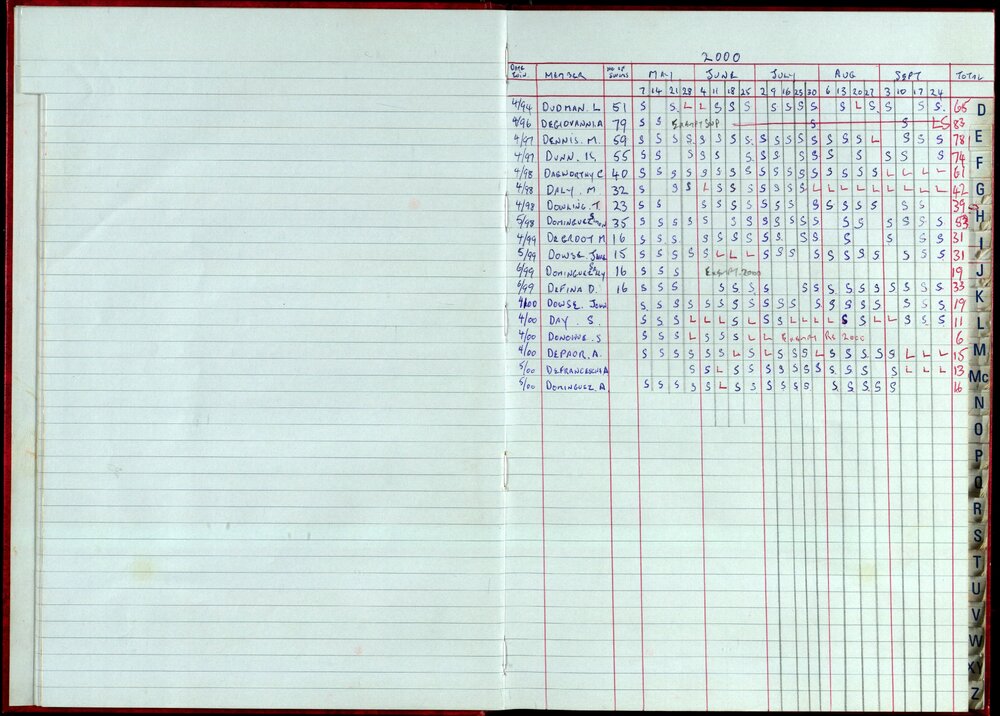 2000
DATE JOIN. MEMBER NO OF SWIMS MAY JUNE JULY AUG SEPT TOTAL
7 14 21 28 4 11 18 25 2 9 16 23 30 6 13 20 27 3 10 17 24
4/94 DUDMAN. L 51 S S L L S S S S S S S S S L S S S S 65 D
4/96 DEGIOVANNI.A 79 S S EXEMPT SUP S S L S 83
4/97 DENNIS. M. 59 S S S S S S S S S S S S S S S S L S S S 78 E
4/97 DUNN. K. 55 S S S S S S S S S S S S S S S 74 F
4/98 DAGWORTHY C 40 S S S S S S S S S S S S S S S S S L L L L 61
4/98 DALY. M. 32 S S S L S S S S S S S L L L L L L L L 42 G
4/98 DOWLING. T. 23 S S S S S S S S S S S S S S S S 39
5/98 DOMINGUEZ 35 S S S S S S S S S S S S S S S S S S 53 H
4/99 DEGROOT M 16 S S S S S S S S S S S S S S 31 I
5/99 DOWSE. 15 S S S S S L L L S S S S S S S S S S 31 J
6/99 DOMINGUEZ 16 S S S EXEMPT. 2000 19
6/99 DEFINA D. 16 S S S S S S S S S S S S S S S S S 33 K
4/00 DOWSE. JOHN S S S S S S S S S S S S S S S S S S S 19
4/00 DAY. S. S S S L L L S L S S L L L L S S L L S S S 11 L
4/00 DONOHUE. S S S S L S S S L L EXEMPT RE 2000 6
4/00 DEPAOR. A. S S S S S S L S L S S S L S S S S S L L L 15 M
5/00 DEFRANCESCHI A S S L S S S S S S S S S S S S L L L 13 Mc
5/00 DOMINGUEZ. A S S S S S L S S S S S S S S S S S S 16
N
O
P
Q
R
S
T
U
V
W
XY
Z